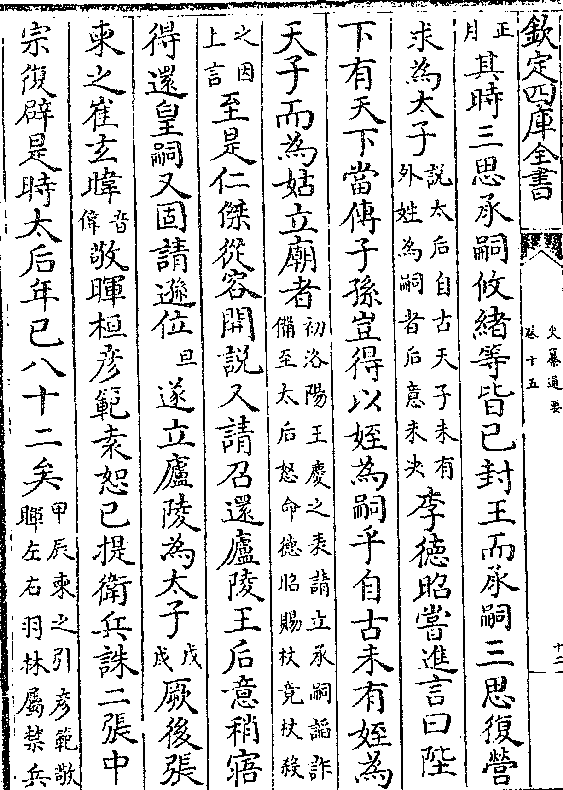 欽定四庫全書
史纂通要
卷十五
十二
正月其時三思承嗣攸緒等皆已封王而承嗣三思復營
求為太子說太后自古天子未有外姓為嗣者后意未决李德昭嘗進言曰陛
下有天下當傳子孫豈得以姪為嗣乎自古未有姪為
天子而為姑立廟者初洛陽王慶之表請立承嗣謟詐備至太后怒命德昭賜杖竟杖殺
之因上言至是仁傑從容開説又請召還廬陵王后意稍寤
得還皇嗣又固請遜位旦遂立廬陵為太子戊戌厥後張
柬之崔玄暐音偉敬暉桓彦範袁恕已提衛兵誅二張中
宗復辟是時太后年已八十二矣甲辰柬之引彦範敬暉左右羽林屬禁兵